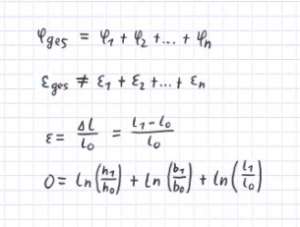 φges = φ1 + φ2 +...+ φn
εges ≠ ε1 + ε2 +...+ εn
ε = Δl/l0 = (l1-l0)/l0
0 = ln(h1/h0) + ln(b1/b0) + ln(l1/l0)